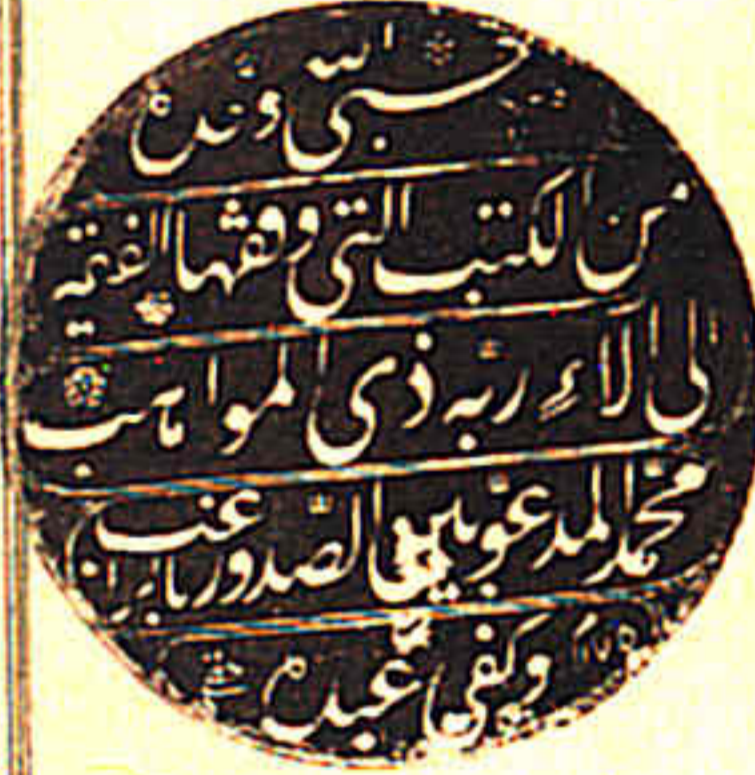 حسبي الله وحده
من الكتب التي وقفها الفقير
الى آلاء ربه ذي المواهب
محمد المدعو بين الصدور براغب
وكفى عبده ١١٧٥